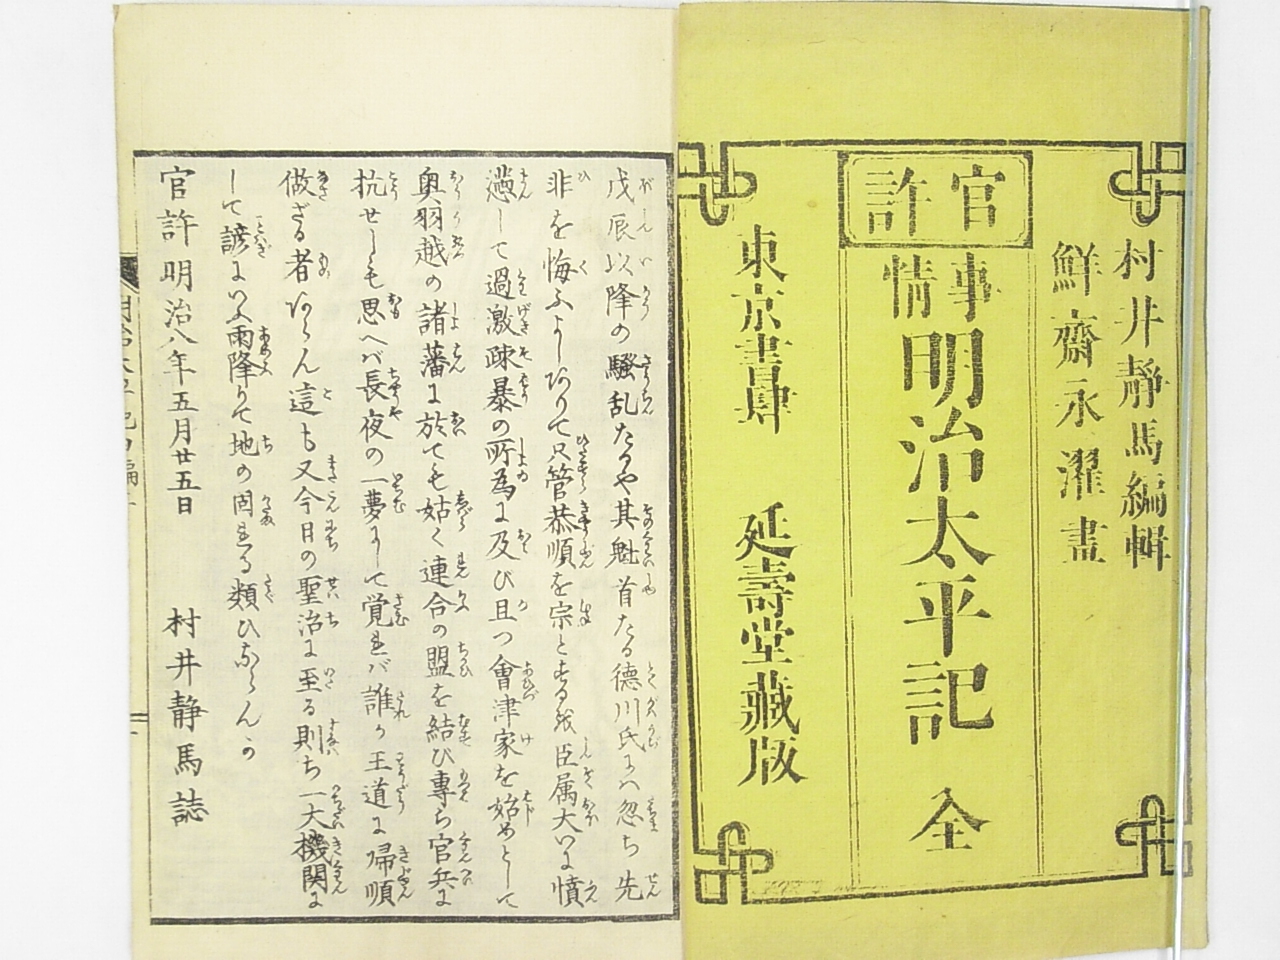 村井靜馬編輯
鮮齋永濯畫
官許
事情
明治太平記 全
東京書肆 延壽堂藏版
戊辰以降の騒乱たるや其魁首たる徳川氏にハ忽ち先
非を悔ふよしありて只管恭順を宗とするも臣属大いに憤
懣して過激疎暴の所為に及び且つ會津家を始めとして
奥羽越の諸藩に於ても姑く連合の盟を結び專ら官兵に
抗せしも思へバ長夜の一夢にして覚れバ誰か王道に帰順
做ざる者あらん這も又今日の聖治に至る則ち一大機関に
して諺にいふ雨降りて地の固まる類ひならんか
官許明治八年五月廿五日 村井静馬誌